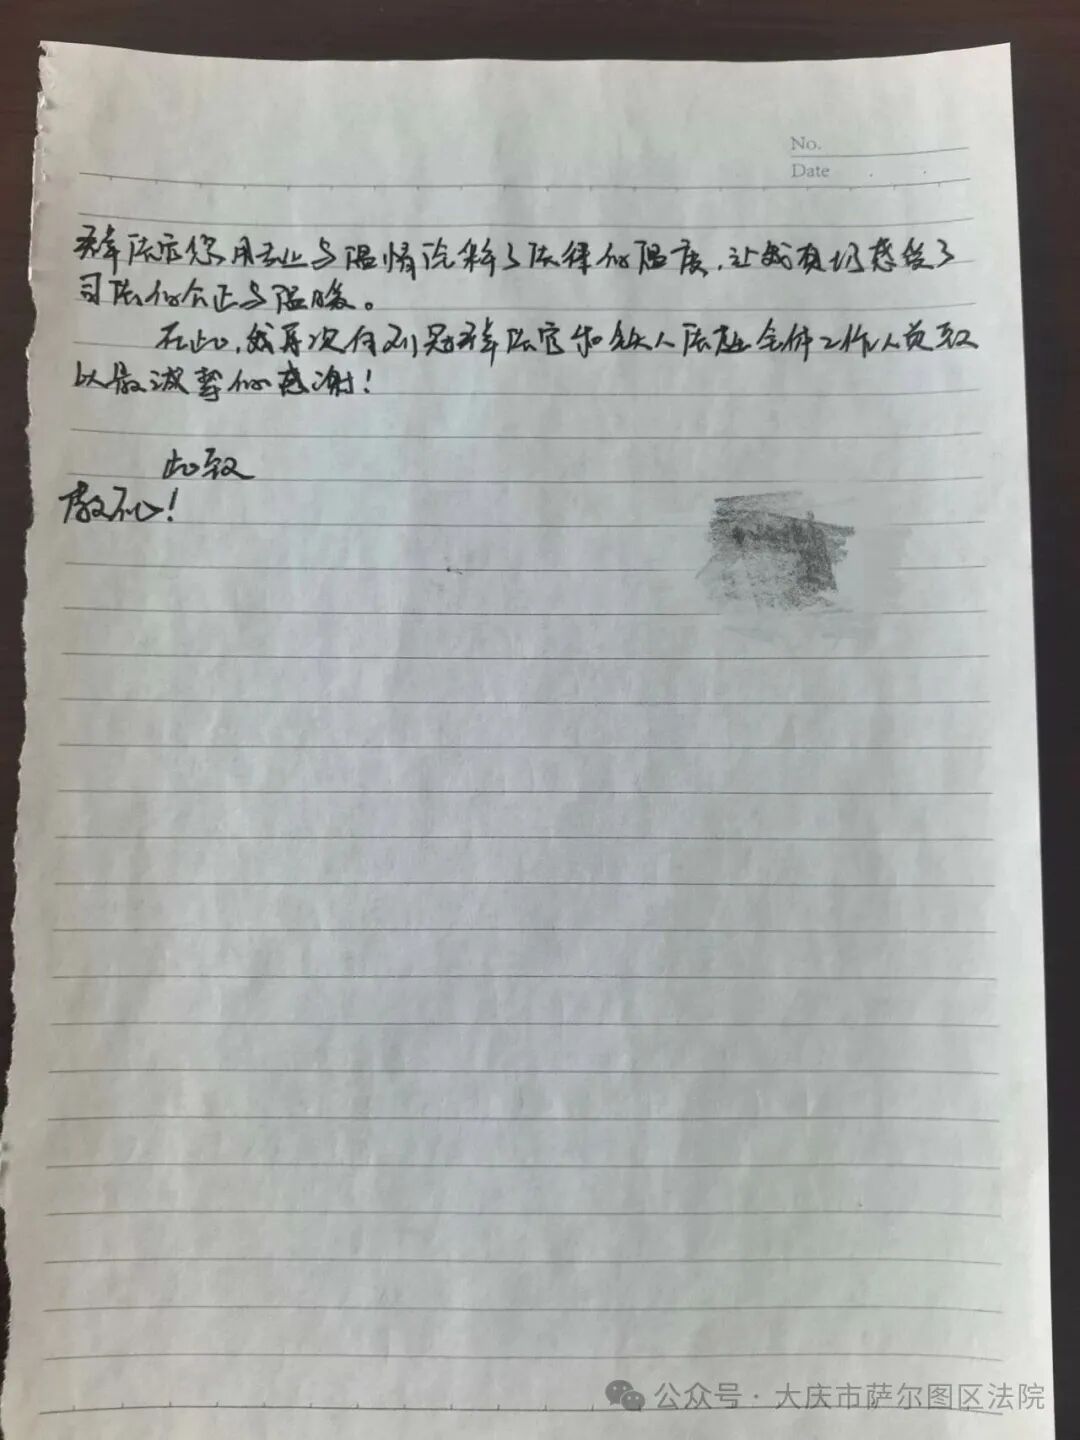 No.
Date
群法官您用专业与温情诠释了法律的温度,让我真切感受了
司法的公正与温暖。
在此,我再次向刘冠群法官和铁人法庭全体工作人员致
以最诚挚的感谢!
此致
敬礼!
公众号·大庆市萨尔图区法院